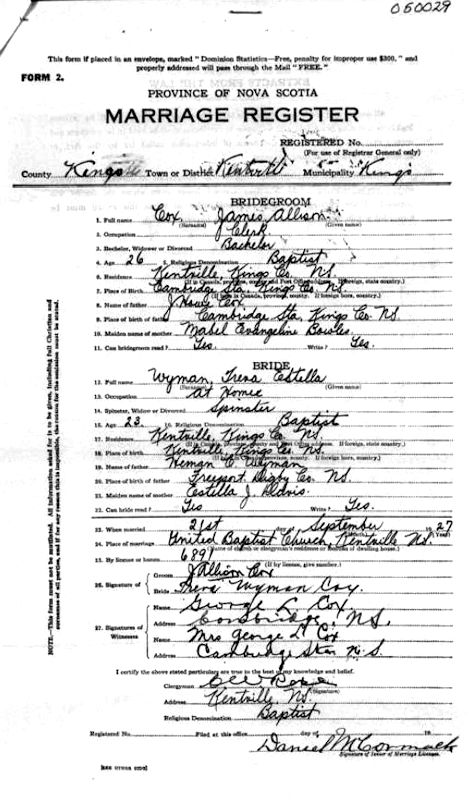 050029
This form if placed in an envelope, marked "Dominion Statistics—Free, penalty for improper use $300," and
properly addressed will pass through the Mail "FREE."
FORM 2.
PROVINCE OF NOVA SCOTIA
MARRIAGE REGISTER
REGISTERED No.
(For use of Registrar General only)
County Kings Town or District Kentville Municipality Kings
BRIDEGROOM
1. Full name Cox James Allison
(Surname) (Given name)
2. Occupation Clerk
3. Bachelor, Widower or Divorced Bachelor
4. Age 26 5. Religious Denomination Baptist
6. Residence Kentville, Kings Co. NS.
7. Place of Birth Cambridge Sta. Kings Co. NS
8. Name of father J Cox
9. Place of birth of father Cambridge Sta, Kings Co. NS
10. Maiden name of mother Mabel Evangeline Bowles
11. Can bridegroom read? Yes Write? Yes.
BRIDE
12. Full name Wyman, Trena Estella
(Given name)
13. Occupation At Home
14. Spinster, Widow or Divorced Spinster
15. Age 23 16. Religious Denomination Baptist
17. Residence Kentville, Kings Co NS.
18. Place of birth Kentville, Kings Co NS.
19. Name of father Heman C. Wyman
20. Place of birth of father Freeport, Digby Co. NS.
21. Maiden name of mother Estella J.
22. Can bride read? Yes Write? Yes.
23. When married 21st day of September 1927
24. Place of marriage United Baptist Church, Kentville NS.
(Name of church or clergyman's residence or number of dwelling house.)
25. By license or banns 6891
(If by license, give number.)
26. Signature of Groom J Allison Cox
Bride Trena Wyman Cox
27. Signatures of Witnesses
Name George L. Cox.
Address Cambridge, N.S.
Name Mrs George L Cox
Address Cambridge Stan N.S.
I certify the above stated particulars are true to the best of my knowledge and belief.
Clergyman
(Signature)
Address Kentville NS.
Religious Denomination Baptist
Registered No. Filed at this office day of 19
Daniel McCormack
Signature of Issuer of Marriage Licenses.
[SEE OTHER SIDE]
NOTE.—This form must not be mutilated. All information asked for is to be given, including full Christian and
surnames of all parties, and if for any reason this is impossible, the reason for the omission must be stated.